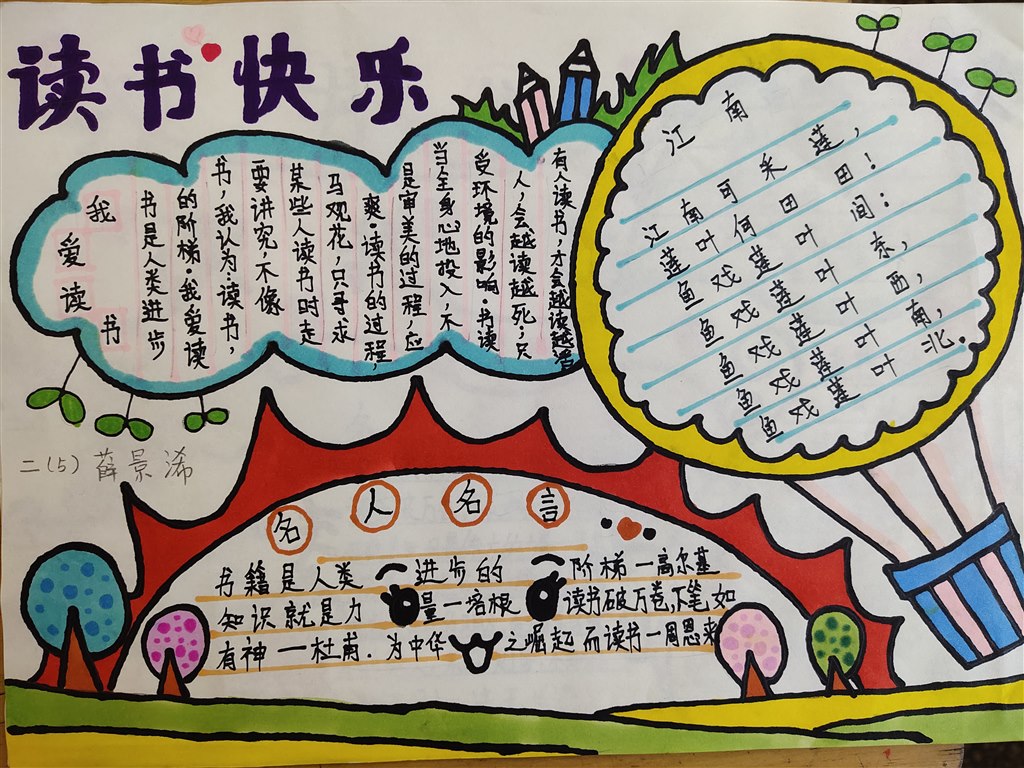 读书快乐
我爱读书
书是人类进步
的阶梯.我爱读
书,我认为:读书,
要讲究,不像
某些人读书时走
马观花,只寻求
爽.读书的过程,
是审美的过程,应
当全身心地投入,不
受环境的影响.书读
人,会越读越死;只
有人读书,才会越读越
江南
江南可采莲,
莲叶何田田!
鱼戏莲叶间:
鱼戏莲叶东,
鱼戏莲叶西,
鱼戏莲叶南,
鱼戏莲叶北.
二(5) 薛景浠
名人名言
书籍是人类进步的阶梯—高尔基
知识就是力量—培根 读书破万卷,下笔如
有神—杜甫.为中华之崛起而读书—周恩来